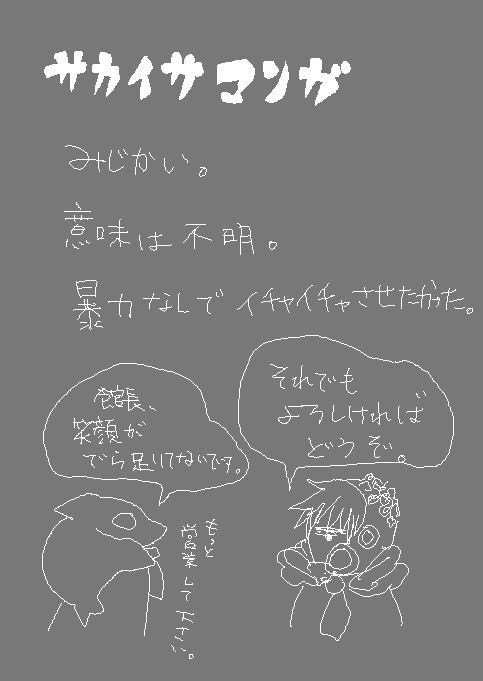 サカイサマンガ
みじかい。
意味は不明。
暴力なしでイチャイチャさせたかった。
それでも
よろしければ
どうぞ。
館長、
笑顔が
でら足りてないです。
もっと
営業して下さい。